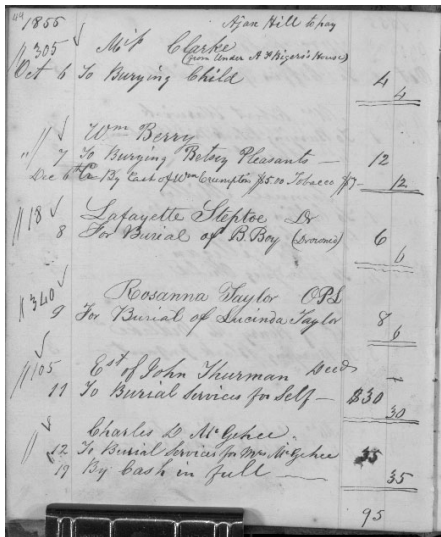 49
1855 Ajax Hill to pay
305 Miss Clarke
(from under A D Rizer's House)
Oct 6 To Burying Child 4
4
Wm Berry
" 7 To Burying Betsey Pleasants — 12
Dec 6 Cr By Cast of Wm Crumpton $5.00 Tobacco $7 - 12
18 Lafayette Steptoe Dr
8 For Burial of B. Boy (Drowned) 6
6
340 Rosanna Taylor OPL
9 For Burial of Lucinda Taylor 8
6
105 Est of John Thurman Decd
11 To Burial Services for Self — $30
30
Charles D McGehee
12 To Burial Services for Mrs McGehee 35
19 By Cash in full — 35
95